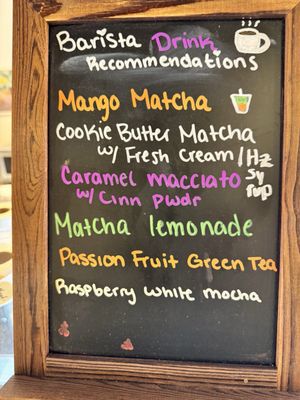 Barista Drink
Recommendations
Mango Matcha
Cookie Butter Matcha
w/ Fresh Cream/Hz
Syrup
Caramel macciato
w/ Cinn pwdr
Matcha lemonade
Passion Fruit Green Tea
Raspberry white mocha